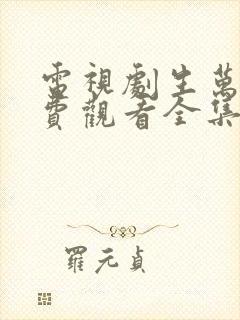 電視劇生萬
費觀看全集
羅元貞